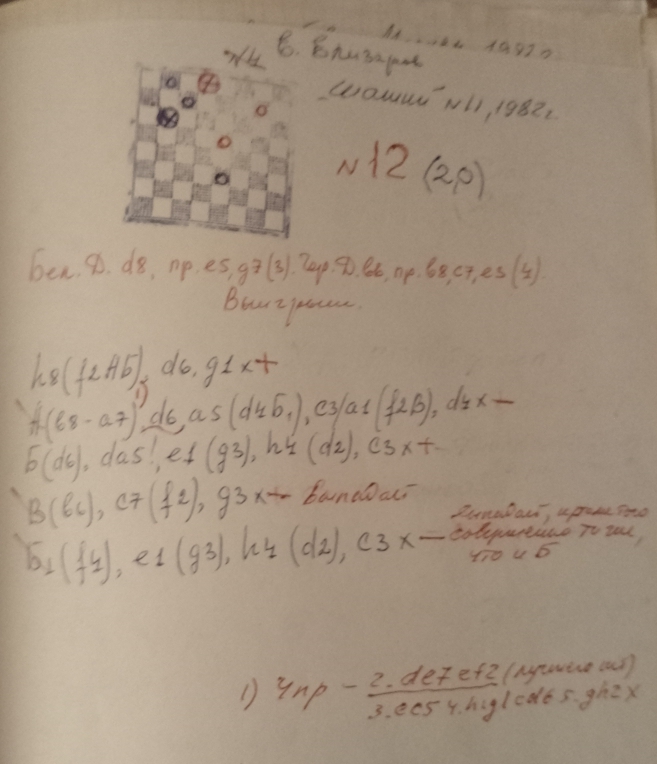 1982г.
№4 В. Елизаров
"Шашки" №11, 1982г.
№12 (2р)
Бел. Д. d8, пр. e5, g7 (3). Чер. Д. b6, пр. b8, c7, e3 (4).
Выигрыш.
h8 (f2АБ), d6, g1x+
А(b8-a7)¹⁾, d6, a5 (d4Б₁), c3/a1 (f2В), d4x−
Б(d6), da5!, e1 (g3), h4 (d2), c3x+
В(b6), c7 (f2), g3x− Выпадает
Б₁(f4), e1 (g3), h4 (d2), c3x− Выпадает, кроме того
совершенно то же,
что и Б
1) 4пр − 2. de7 ef2
3. ec5 4. hg1 cd6 5. gh2x